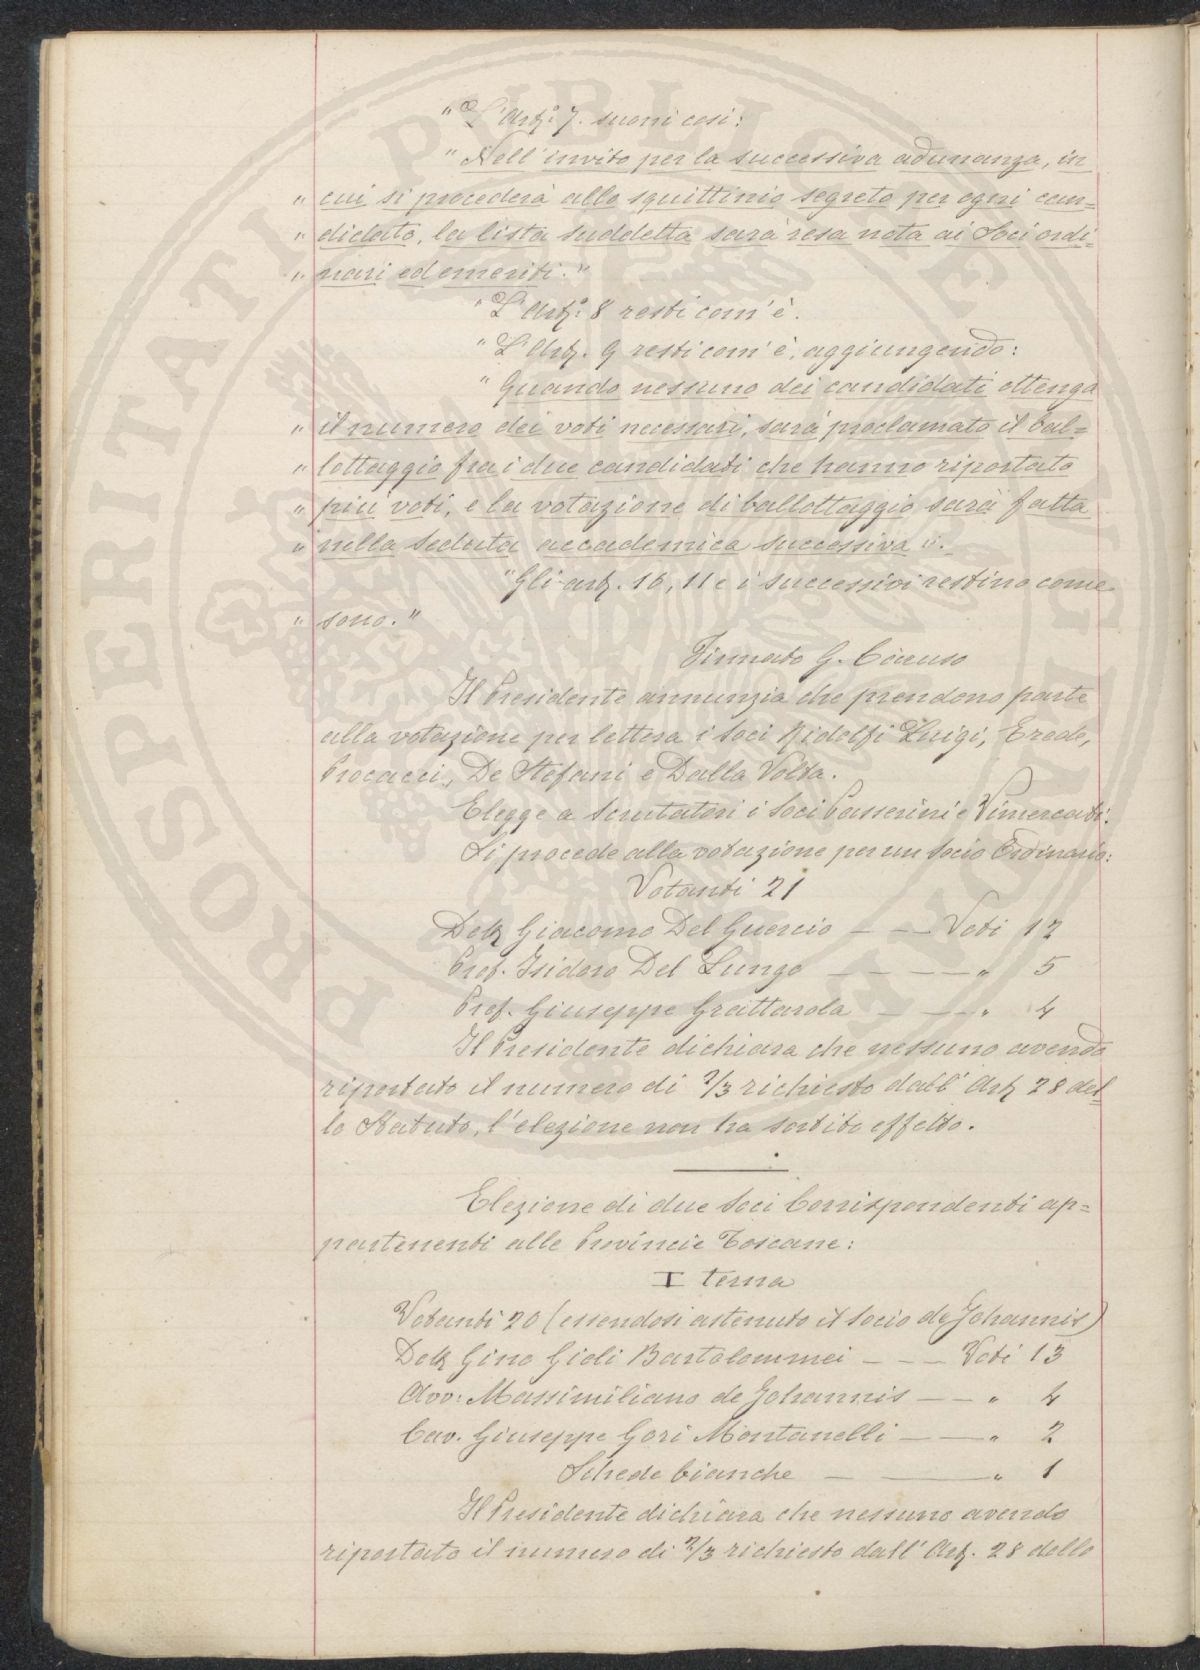 "L'Art.° 7. suoni così:
"Nell'invito per la successiva adunanza, in
" cui si procederà allo squittinio segreto per ogni can=
" didato, la lista suddetta sarà resa nota ai Soci ordi=
" nari ed emeriti."
"L'Art.° 8 resti com'è.
"L'Art. 9 resti com'è, aggiungendo:
"Quando nessuno dei candidati ottenga
" il numero dei voti necessari, sarà proclamato il bal=
" lottaggio fra i due candidati che hanno riportato
" più voti, e la votazione di ballottaggio sarà fatta
" nella seduta accademica successiva".
"Gli art. 10, 11 e i successivi restino come
" sono."
Firmato G. Caruso
Il Presidente annunzia che prendono parte
alla votazione per lettera i Soci Ridolfi Luigi, Erede,
Procacci, De Stefani e Dalla Volta.
Elegge a Scrutatori i Soci Passerini e Vimercati.
Si procede alla votazione per un Socio Ordinario:
Votanti 21
Dott. Giacomo Del Guercio — — Voti 12
Prof. Isidoro Del Lungo — — — — " 5
Prof. Giuseppe Grattarola — — — " 4
Il Presidente dichiara che nessuno avendo
riportato il numero di 2/3 richiesto dall'Art. 28 del=
lo Statuto, l'elezione non ha sortito effetto.
Elezione di due Soci Corrispondenti ap=
partenenti alle Provincie Toscane:
I terna
Votanti 20 (essendosi astenuto il Socio de Johannis)
Dott. Gino Gioli Bartolommei — — — Voti 13
Avv: Massimiliano de Johannis — — " 4
Cav. Giuseppe Gori Montanelli — — " 2
Schede bianche — — " 1
Il Presidente dichiara che nessuno avendo
riportato il numero di 2/3 richiesto dall'Art. 28 dello
PROSPERITATI PUBLICAE AUGENDAE